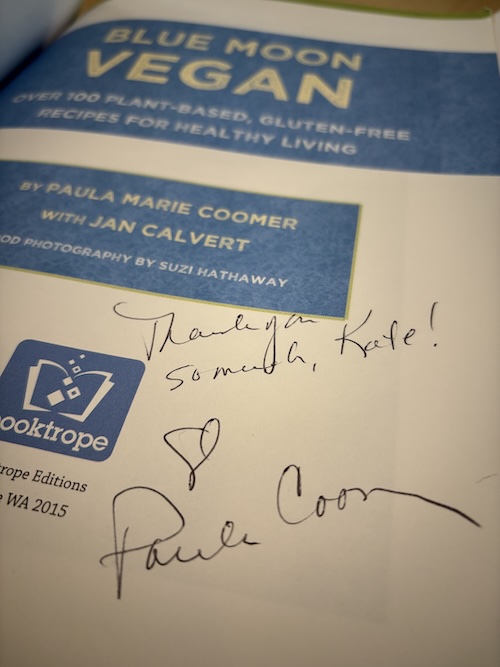 BLUE MOON
VEGAN
OVER 100 PLANT-BASED, GLUTEN-FREE
RECIPES FOR HEALTHY LIVING
BY PAULA MARIE COOMER
WITH JAN CALVERT
OOD PHOTOGRAPHY BY SUZI HATHAWAY
Thank you
so much, Kate!
ooktrope
trope Editions
e WA 2015
Paula Coomer